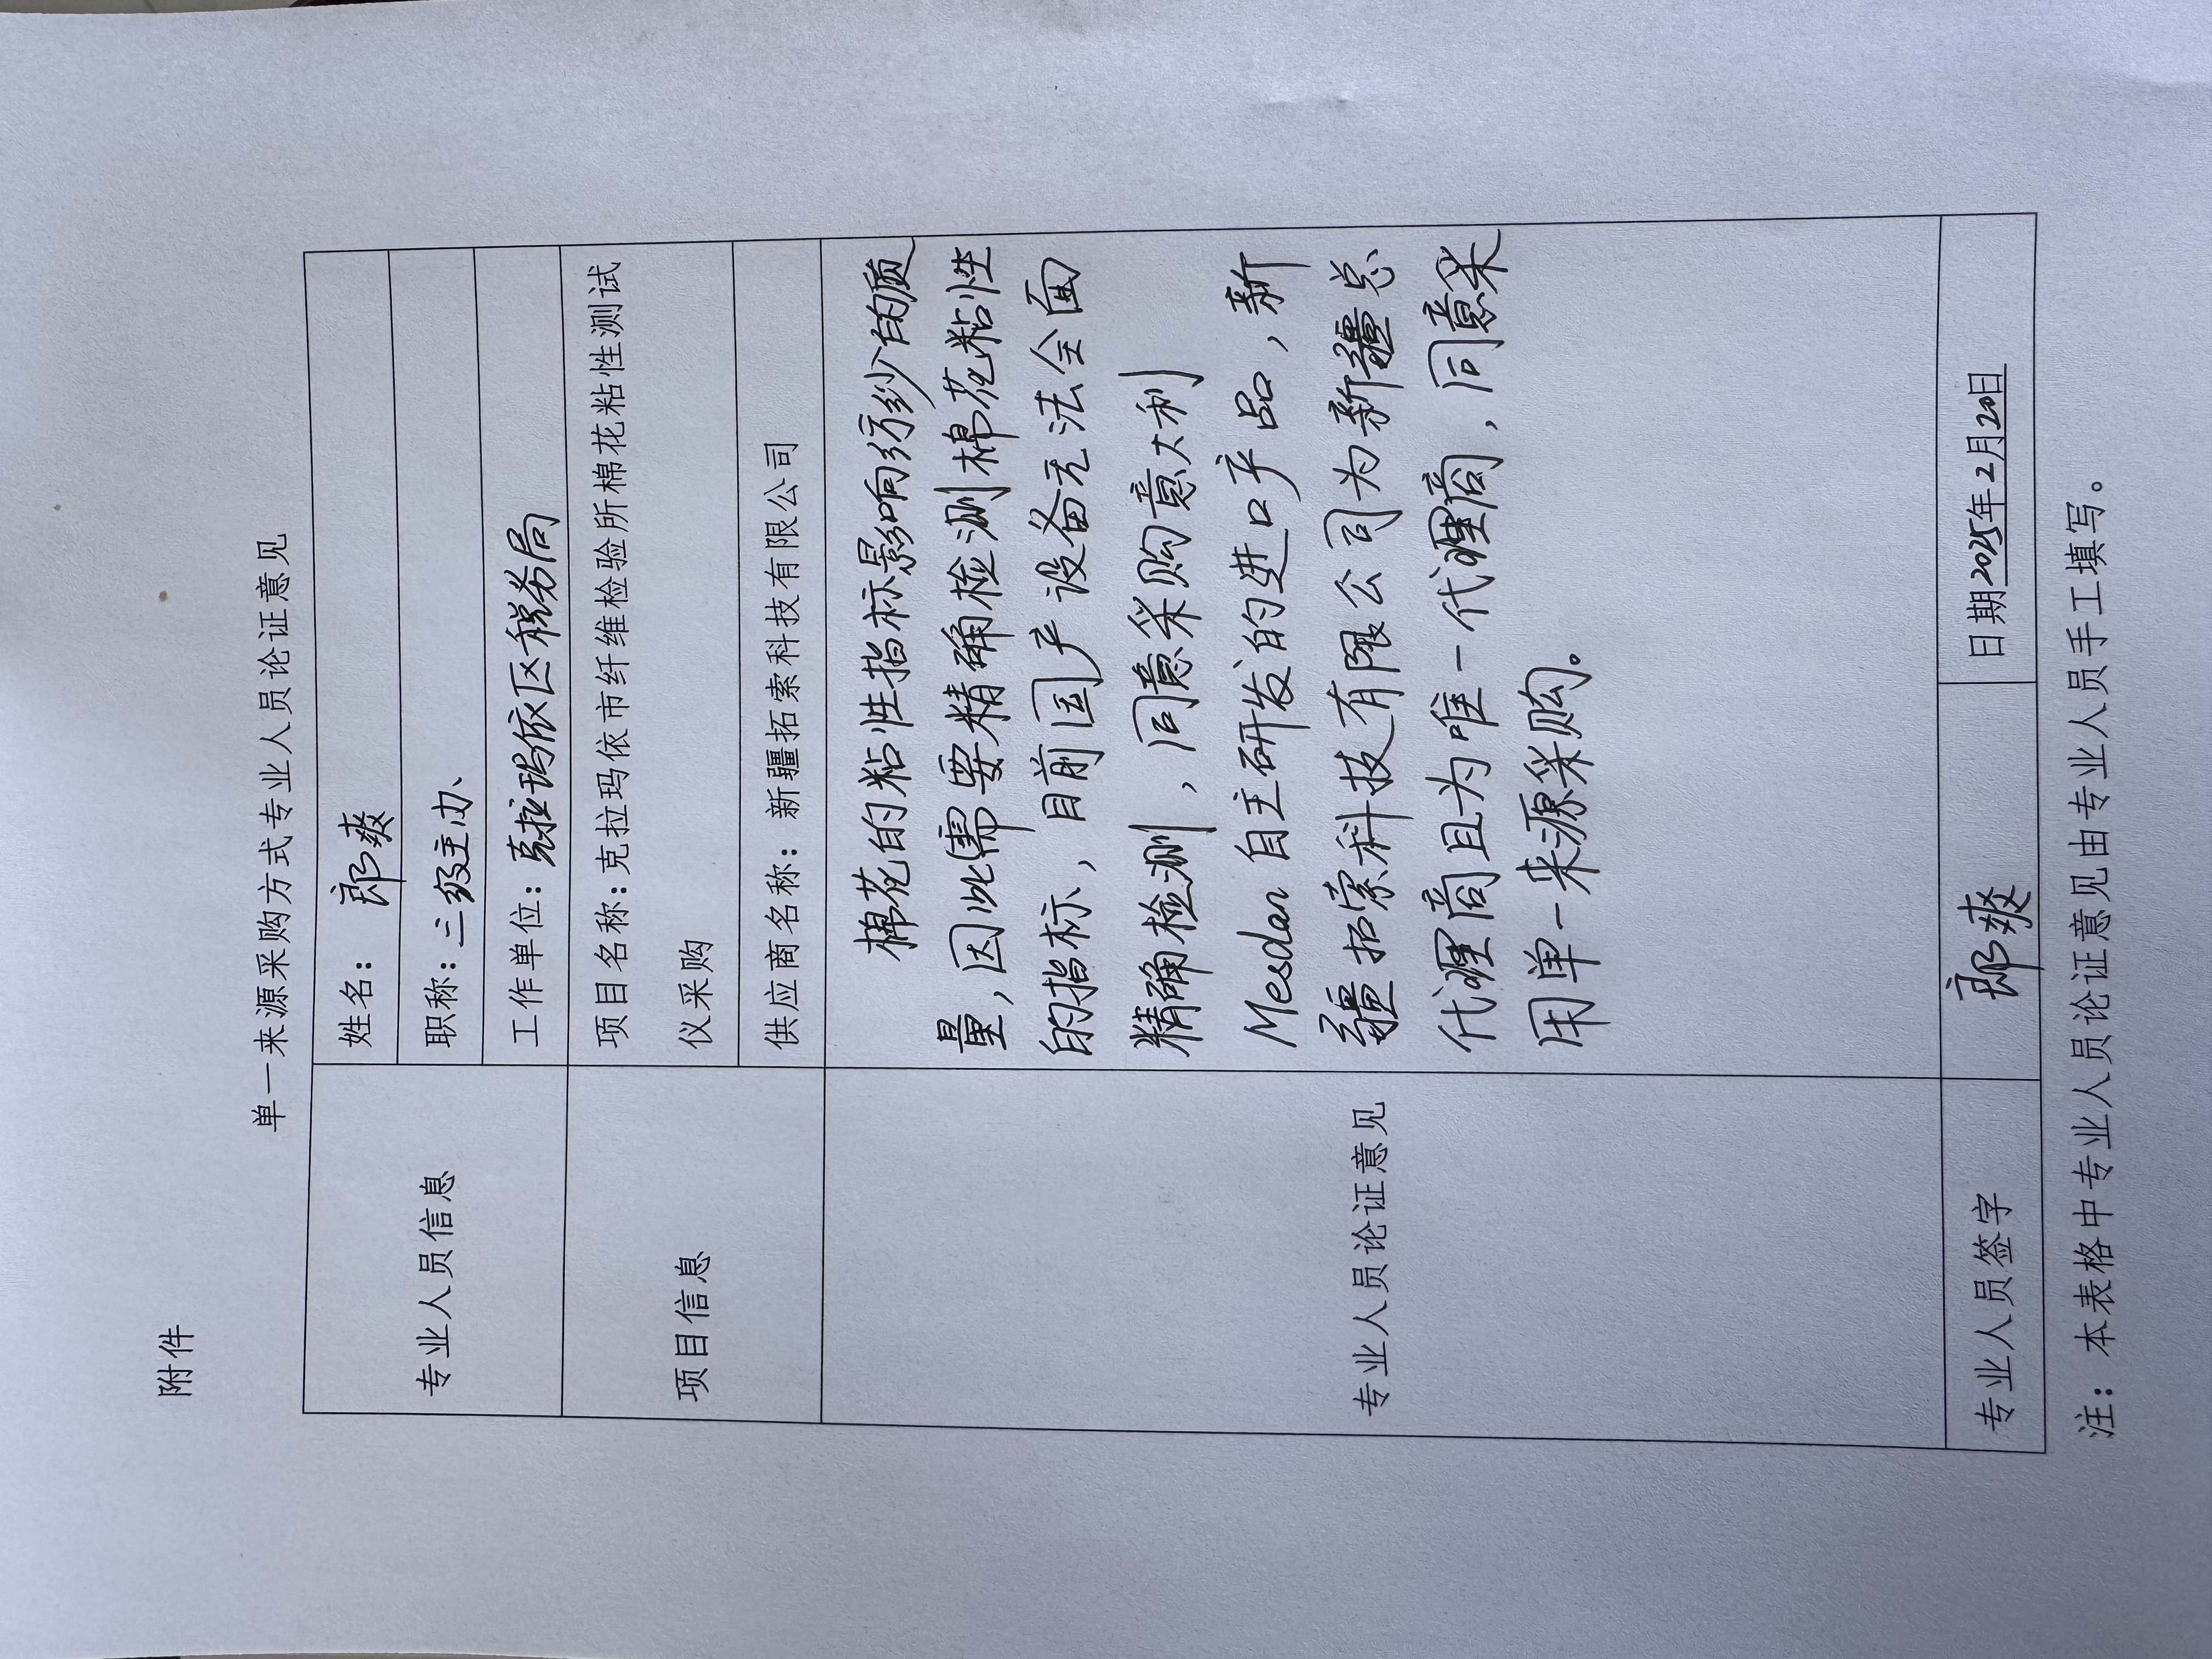 附件
单一来源采购方式专业人员论证意见
专业人员信息
姓名：郎爽
职称：三级主办
工作单位：克拉玛依区税务局
项目信息
项目名称：克拉玛依市纤维检验所棉花粘性测试
仪采购
供应商名称：新疆拓索科技有限公司
专业人员论证意见
棉花的粘性指标影响纺纱的质
量，因此需要精确检测棉花粘性
的指标，目前国产设备无法全面
精确检测，同意采购意大利
Mesdan自主研发的进口产品，新
疆拓索科技有限公司为新疆总
代理商且为唯一代理商，同意采
用单一来源采购。
专业人员签字
郎爽
日期2025年2月20日
注：本表格中专业人员论证意见由专业人员手工填写。